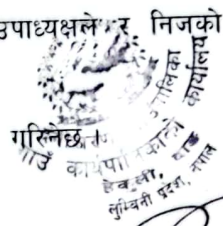 उपाध्यक्षले र निजको
गरिनेछ ।
गाउँ कार्यपालिकाको कार्यालय
लुम्बिनी प्रदेश, नेपाल